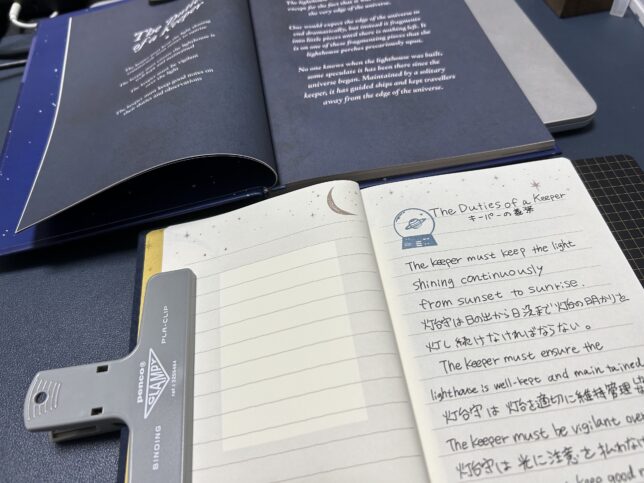 The Duties
of a Keeper
The keeper must keep the light shining
The keeper must be vigilant
over the light
The keeper must keep good notes on
their duties and observations
The lighthouse
except for the fact that it
the very edge of the universe.
One would expect the edge of the universe to
end dramatically, but instead it fragments
into little pieces until there is nothing left. It
is on one of these fragmenting pieces that the
lighthouse perches precariously upon.
No one knows when the lighthouse was built,
some speculate it has been there since the
universe began. Maintained by a solitary
keeper, it has guided ships and kept travellers
away from the edge of the universe.
The Duties of a Keeper
キーパーの義務
The keeper must keep the light
shining continuously
from sunset to sunrise.
灯台守は日の出から日没まで灯台の明かりを
灯し続けなければならない。
The keeper must ensure the
lighthouse is well-kept and maintained
灯台守は灯台を適切に維持管理
The keeper must be vigilant over
灯台守は光に注意を払わなけ
keep good
penco®
CLAMPY
PLA-CLIP
BINDING